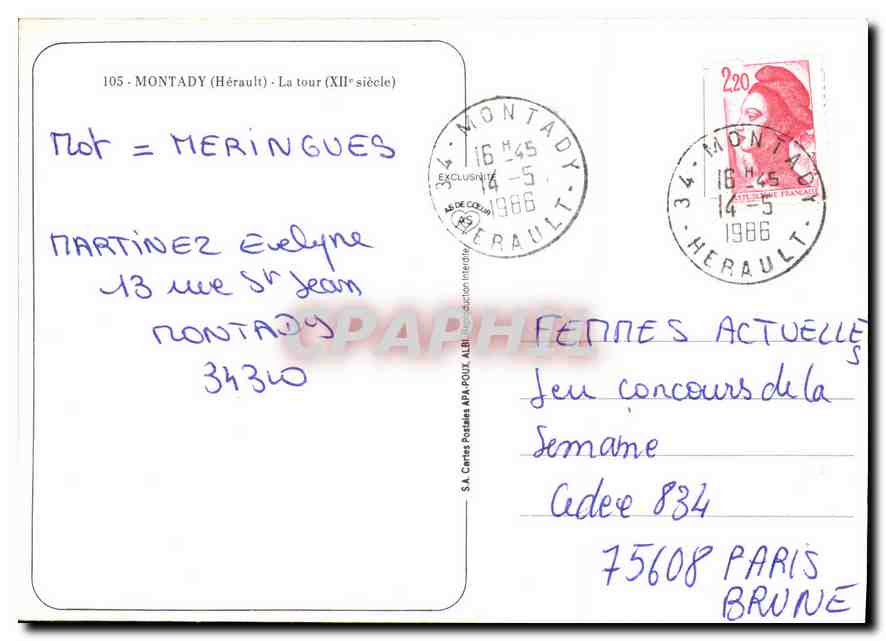 105 - MONTADY (Hérault) - La tour (XIIe siècle)
Mot = MERINGUES
MARTINEZ Evelyne
13 rue St Jean
MONTADY
34310
EXCLUSIVITÉ
AS DE CŒUR
AS
S.A. Cartes Postales APA-POUX, ALBI. Reproduction Interdite
34 - MONTADY - HERAULT -
16 H -45
14 -5
1986
2,20
REPUBLIQUE FRANÇAISE
34 - MONTADY - HERAULT -
16 H -45
14 -5
1986
FEMMES ACTUELLES
Jeu concours de la
Semaine
Cedex 834
75608 PARIS
BRUNE
CPAPHIL